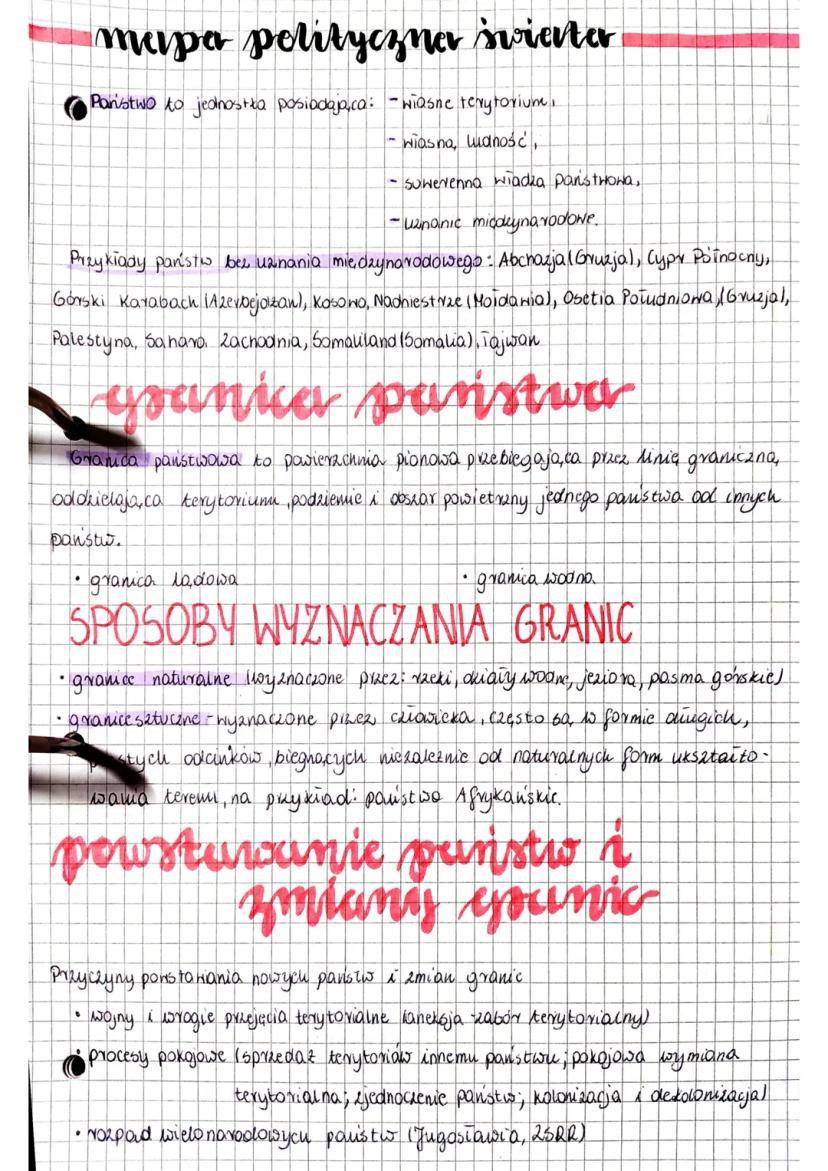 mapa polityczna świata
Państwo to jednostka posiadająca: - własne terytorium,
- własną ludność,
- suwerenną władzę państwową,
- uznanie międzynarodowe.
Przykłady państw bez uznania międzynarodowego: Abchazja (Gruzja), Cypr Północny,
Górski Karabach (Azerbejdżan), Kosowo, Naddniestrze (Mołdawia), Osetia Południowa (Gruzja),
Palestyna, Sahara Zachodnia, Somaliland (Somalia), Tajwan
granica państwa
Granica państwowa to powierzchnia pionowa przebiegająca przez linię graniczną,
oddzielająca terytorium, podziemie i obszar powietrzny jednego państwa od innych
państw.
• granica lądowa • granica wodna
SPOSOBY WYZNACZANIA GRANIC
• granice naturalne (wyznaczone przez: rzeki, działy wodne, jeziora, pasma górskie)
• granice sztuczne - wyznaczone przez człowieka, często są w formie długich,
prostych odcinków, biegnących niezależnie od naturalnych form ukształto-
wania terenu, na przykład: państwa Afrykańskie.
powstawanie państw i
zmiany granic
Przyczyny powstawania nowych państw i zmian granic
• wojny i wrogie przejęcia terytorialne (aneksja - zabór terytorialny)
• procesy pokojowe (sprzedaż terytoriów innemu państwu; pokojowa wymiana
terytorialna; zjednoczenie państw; kolonizacja i dekolonizacja)
• rozpad wielonarodowych państw (Jugosławia, ZSRR)